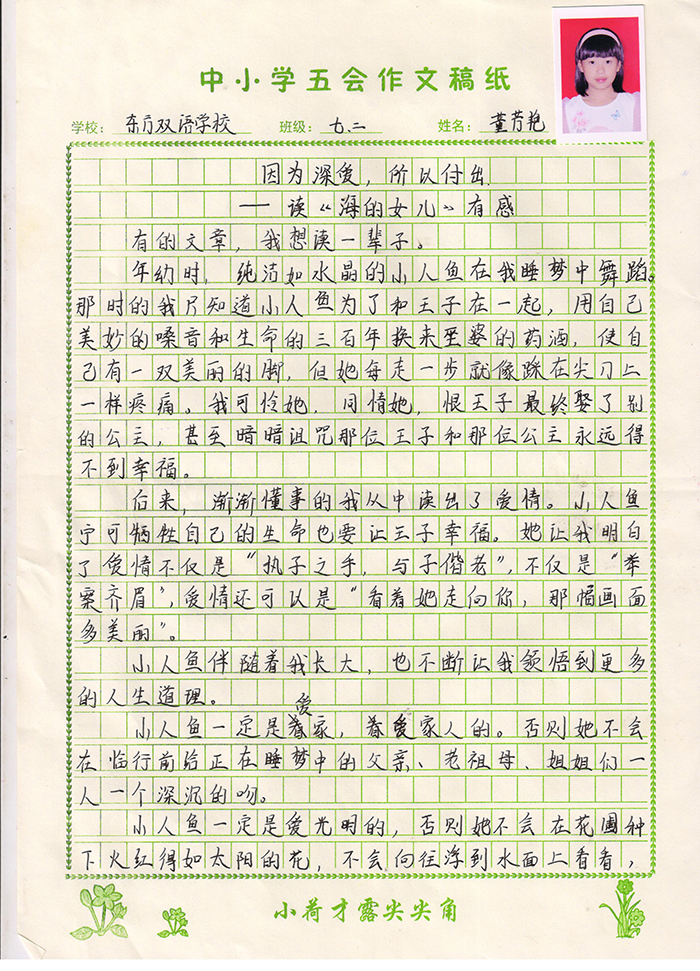 中小学五会作文稿纸
学校： 东方双语学校 班级： 九.二 姓名： 董芳艳
因为深爱，所以付出
——读《海的女儿》有感
有的文章，我想读一辈子。
年幼时，纯洁如水晶的小人鱼在我睡梦中舞蹈。
那时的我只知道小人鱼为了和王子在一起，用自己
美妙的嗓音和生命的三百年换来巫婆的药酒，使自
己有一双美丽的脚，但她每走一步就像踩在尖刀上
一样疼痛。我可怜她，同情她，恨王子最终娶了别
的公主，甚至暗暗诅咒那位王子和那位公主永远得
不到幸福。
后来，渐渐懂事的我从中读出了爱情。小人鱼
宁可牺牲自己的生命也要让王子幸福。她让我明白
了爱情不仅是“执子之手，与子偕老”，不仅是“举
案齐眉”，爱情还可以是“看着她走向你，那幅画面
多美丽”。
小人鱼伴随着我长大，也不断让我领悟到更多
的人生道理。
小人鱼一定是爱家，眷爱家人的。否则她不会
在临行前给正在睡梦中的父亲、老祖母、姐姐们一
人一个深沉的吻。
小人鱼一定是爱光明的，否则她不会在花圃种
下火红得如太阳的花，不会向往浮到水面上看看，
小荷才露尖尖角